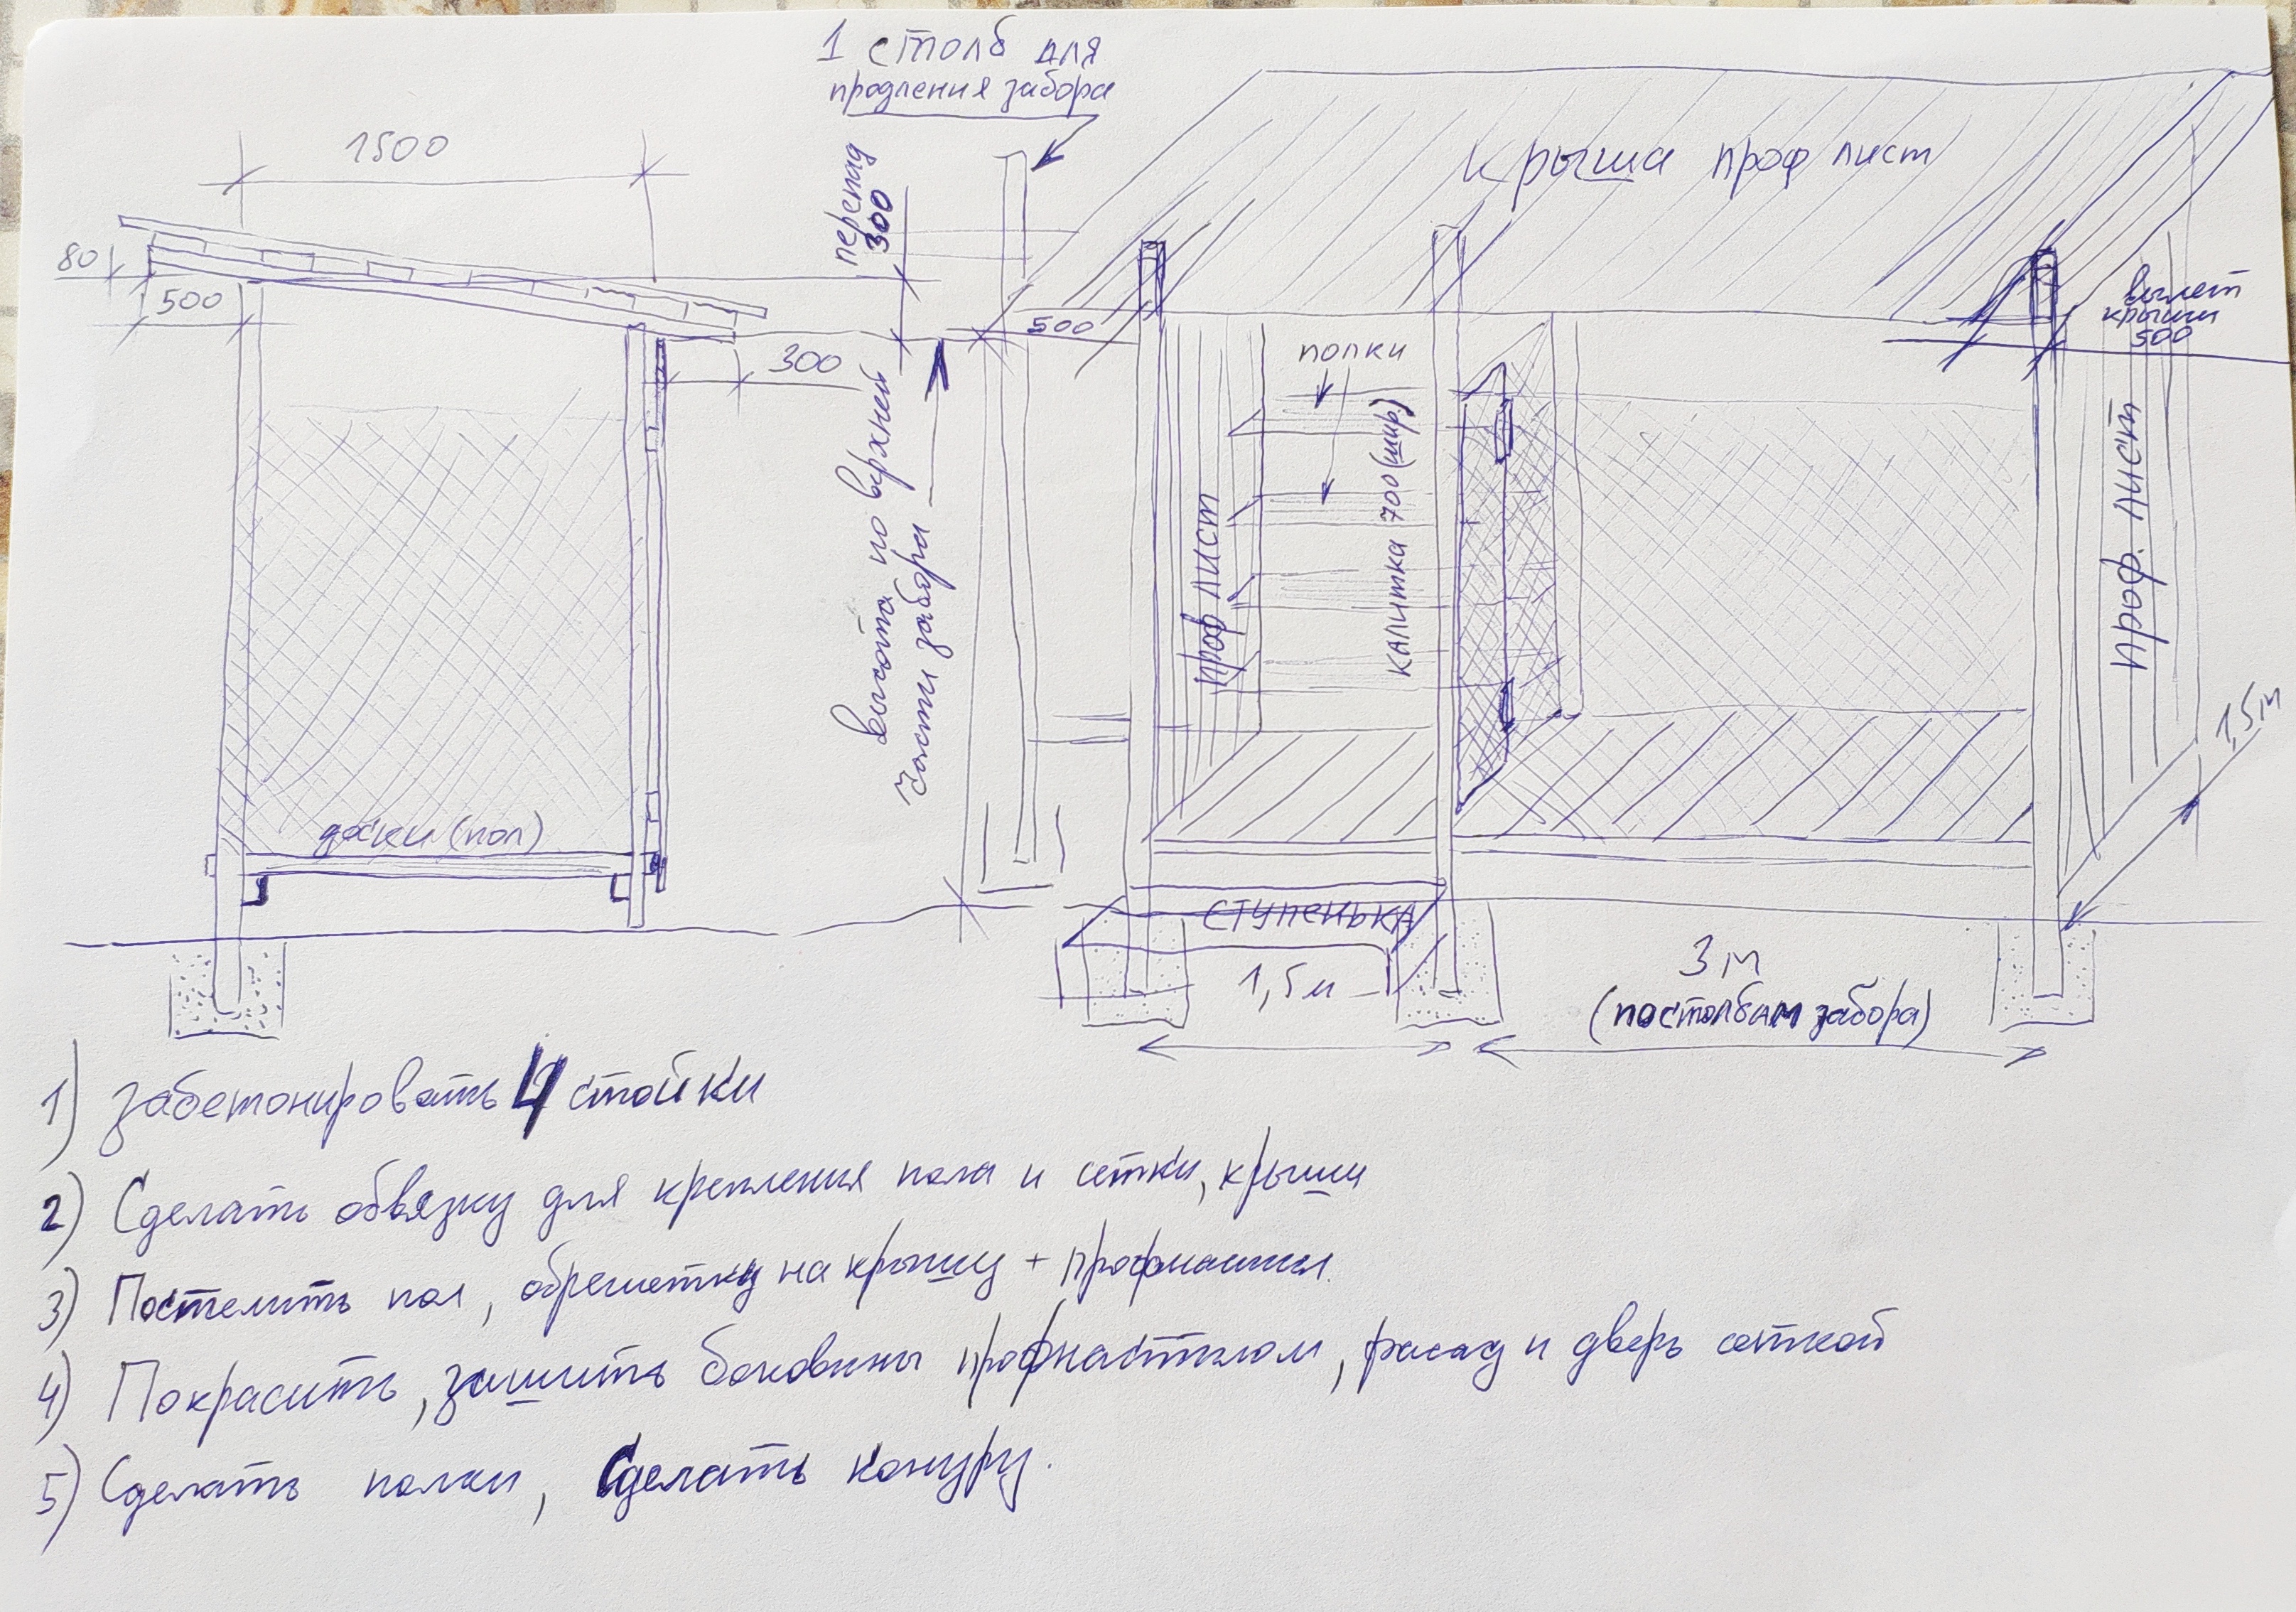 1 столб для
продления забора
1500
80
500
300
перепад
300
высота по верхней
части забора
доски (пол)
крыша проф лист
500
вылет
крыши
500
полки
проф лист
калитка 700 (шир.)
проф. лист
1,5м
ступенька
1,5м
3 м
(по столбам забора)
1) Забетонировать 4 стойки
2) Сделать обвязку для крепления пола и сетки, крыши
3) Постелить пол, обрешетку на крышу + профнастил.
4) Покрасить, зашить боковины профнастилом, фасад и дверь сеткой
5) Сделать полки, Сделать конуру.